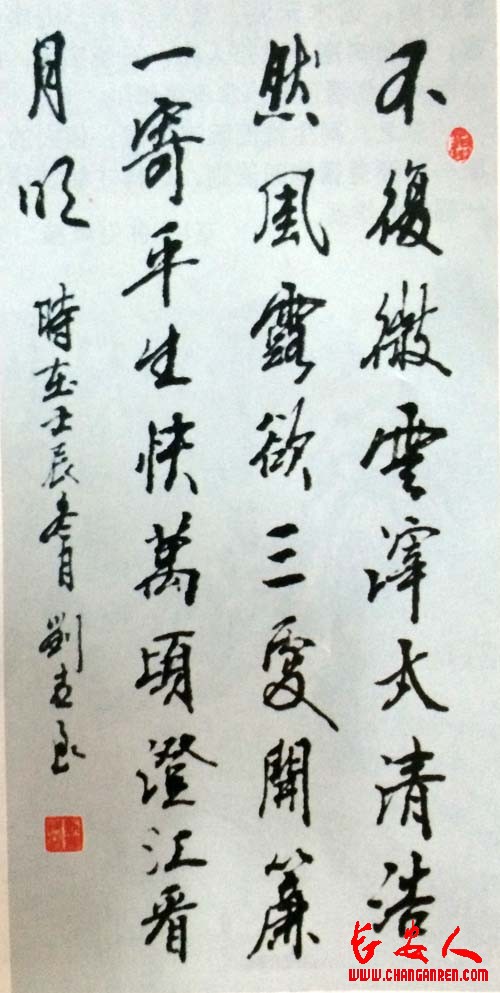 不復微雲滓太清浩
然風露欲三更開簾
一寄平生快萬頃澄江看
月明
時在壬辰冬月 劉
長安人
WWW.CHANGANREN.COM